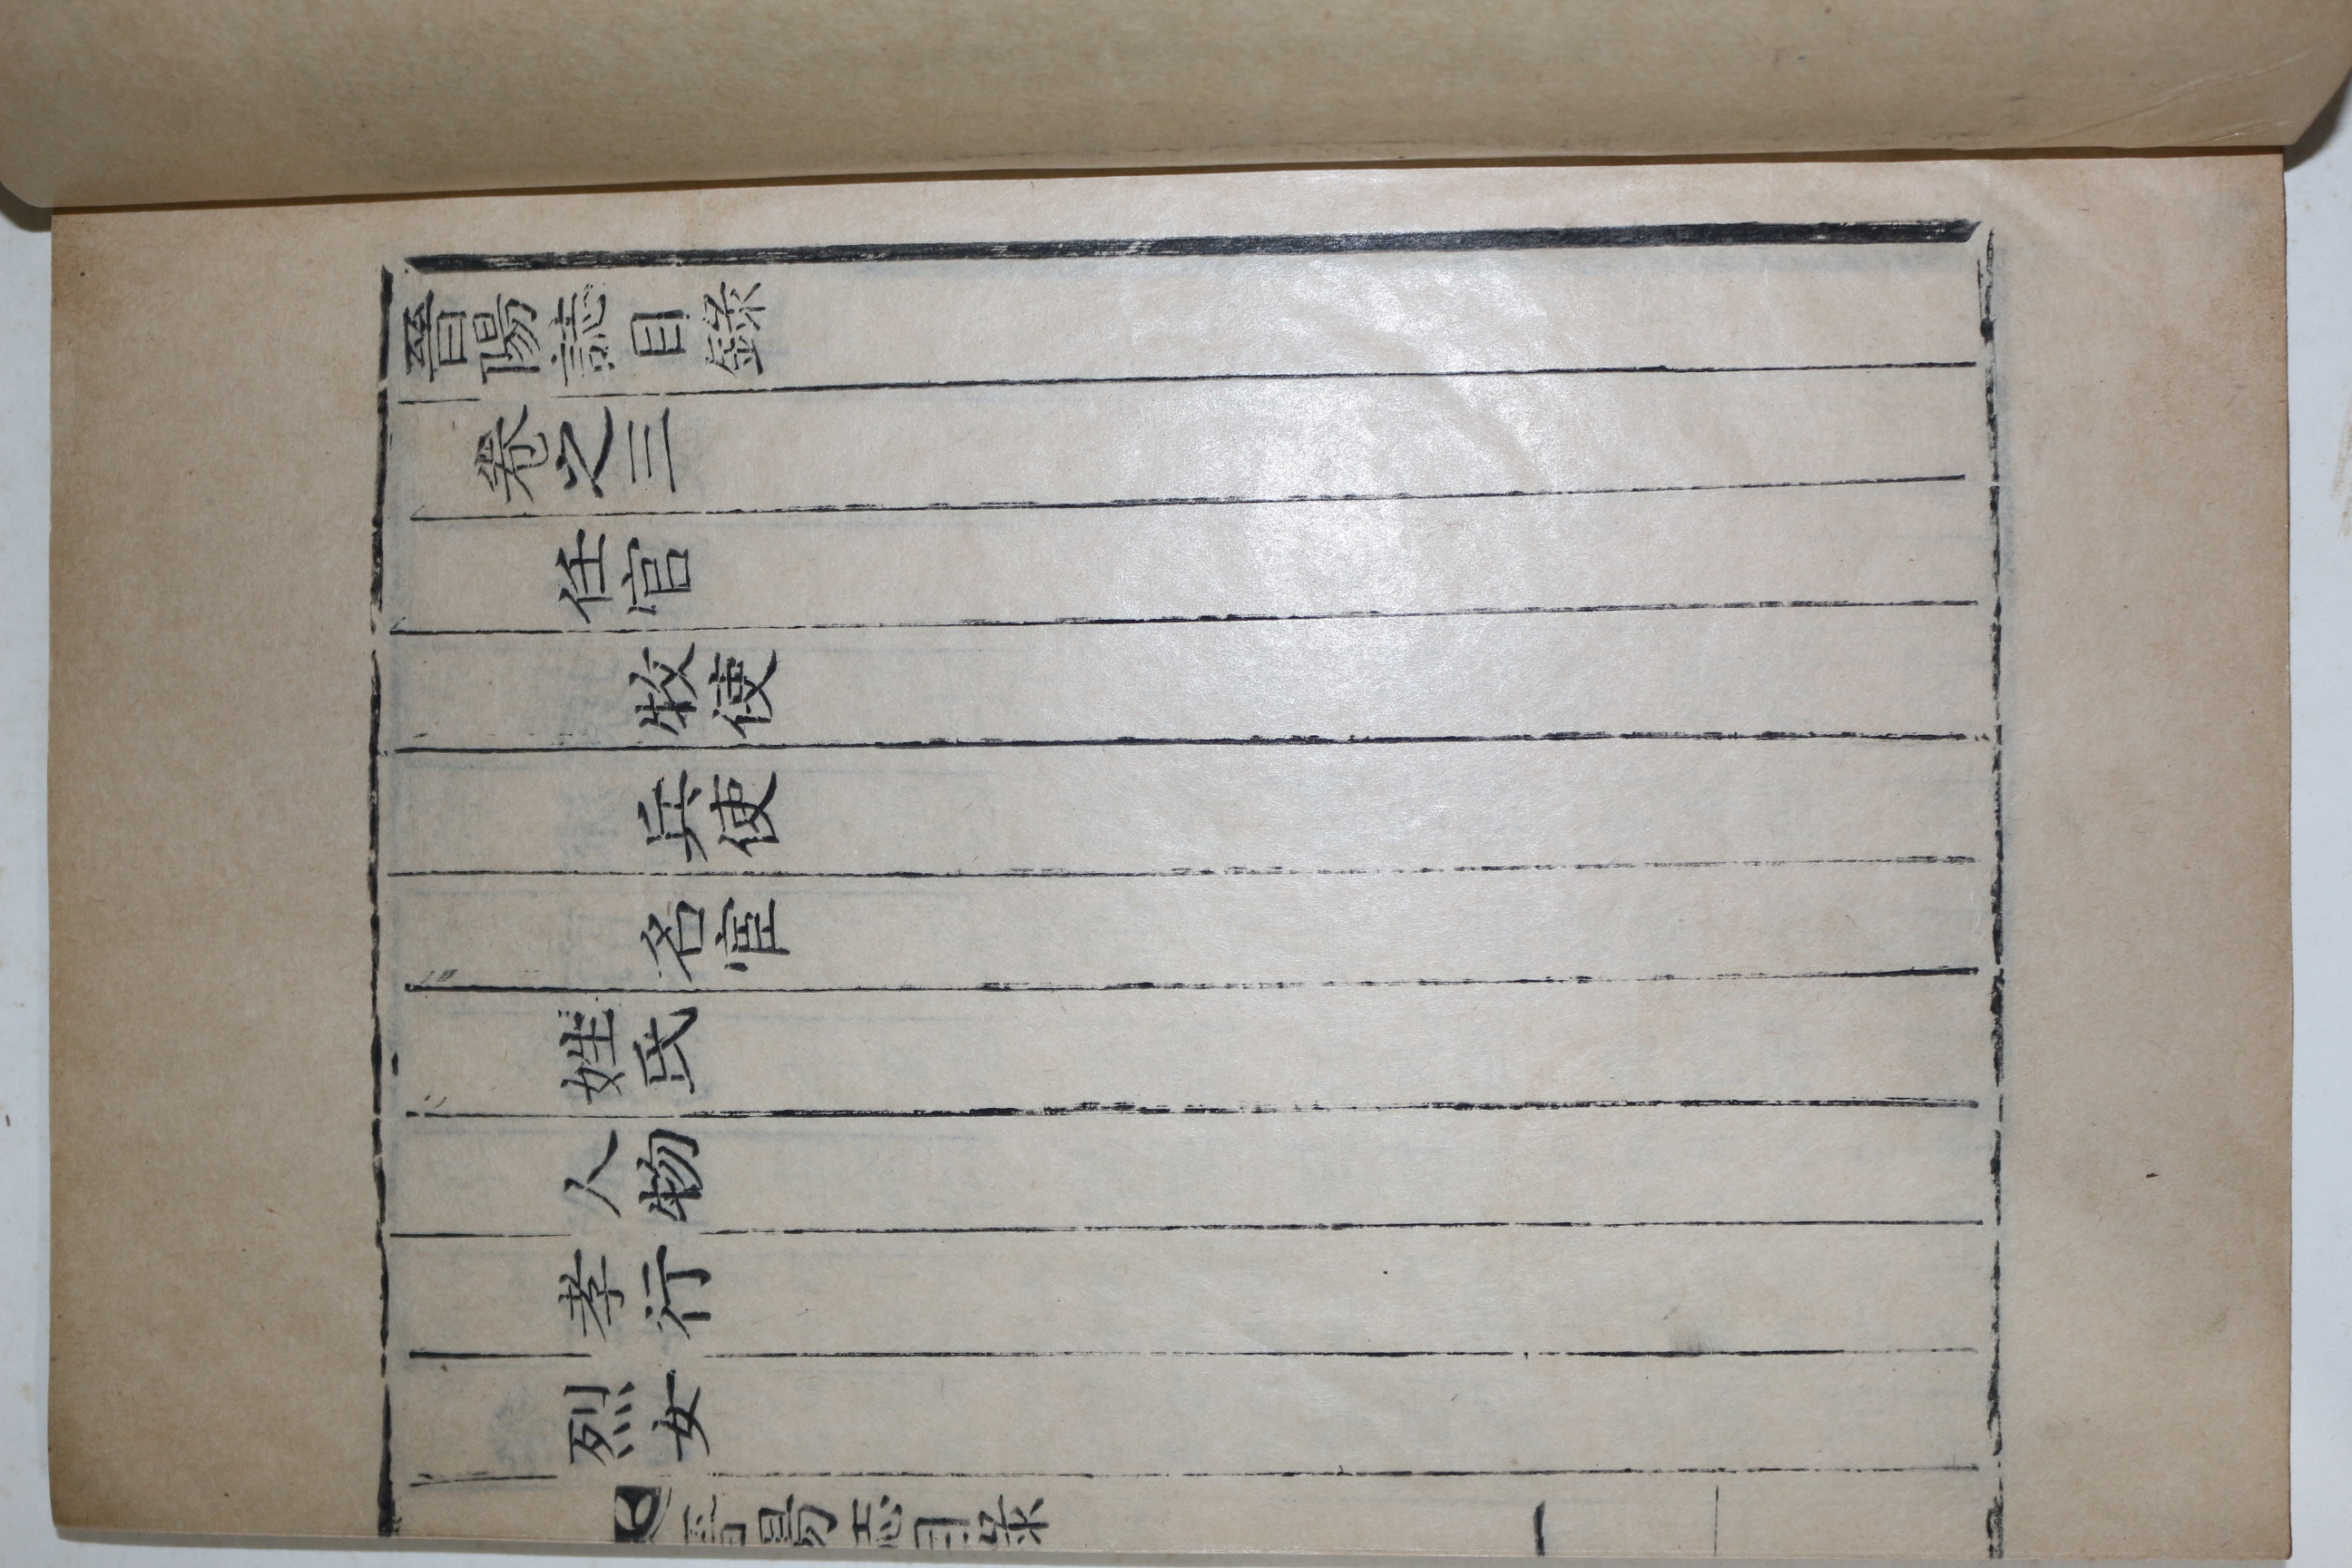 晉陽誌目錄
卷之三
任官
牧使
兵使
名宦
姓氏
人物
孝行
烈女
晉陽誌目錄